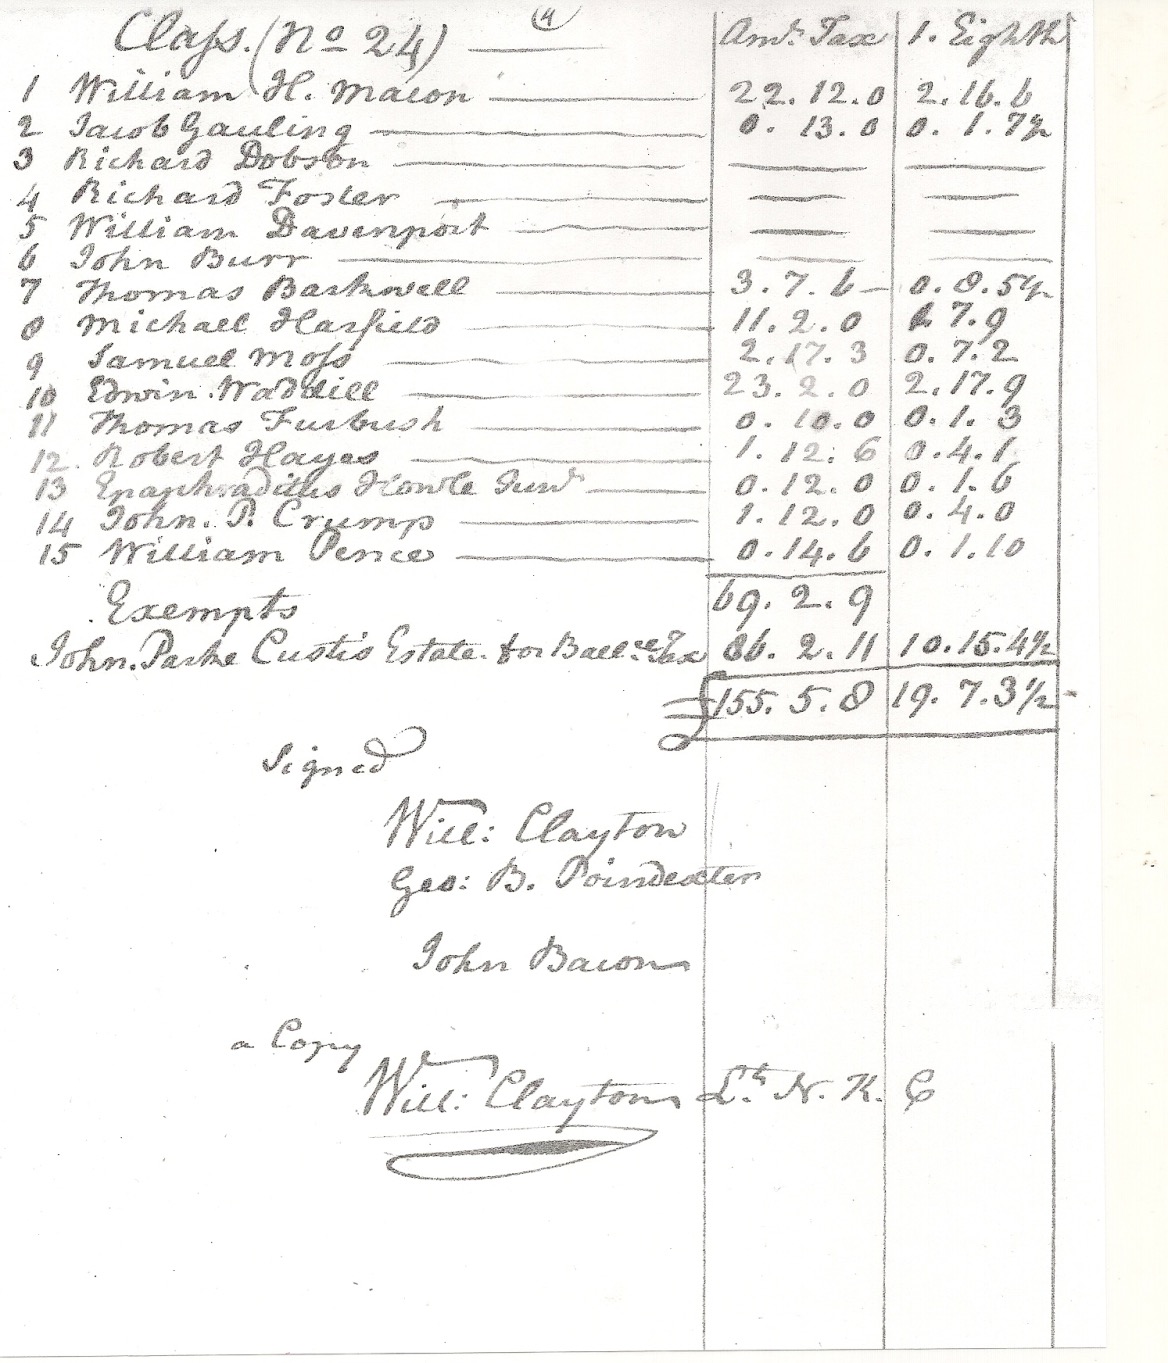 (4)
Class. (No 24) Amt. Tax 1. Eighth
1 William H. Macon 22. 12. 0 2. 16. 6
2 Jacob Gauling 0. 13. 0 0. 1. 7½
3 Richard Dobson
4 Richard Foster
5 William Davenport
6 John Burr
7 Thomas Barkwell 3. 7. 6 0. 8. 5½
8 Michael Harfield 11. 2. 0 1 7. 9
9 Samuel Moss 2. 17. 3 0. 7. 2
10 Edwin Waddill 23. 2. 0 2. 17. 9
11 Thomas Furbush 0. 10. 0 0. 1. 3
12. Robert Hayes 1. 12. 6 0. 4. 1
13 Epaphraditus Howle Junr 0. 12. 0 0. 1. 6
14 John. P. Crump 1. 12. 0 0. 4. 0
15 William Pence 0. 14. 6 0. 1. 10
Exempts 69. 2. 9
John. Parke Custis Estate. for Balce Tax 86. 2. 11 10. 15. 4½
155. 5. 8 19. 7. 3½
Signed
Will: Clayton
Geo: B. Poindexter
John Bacon
a Copy
Will: Clayton Lt. N. K. C